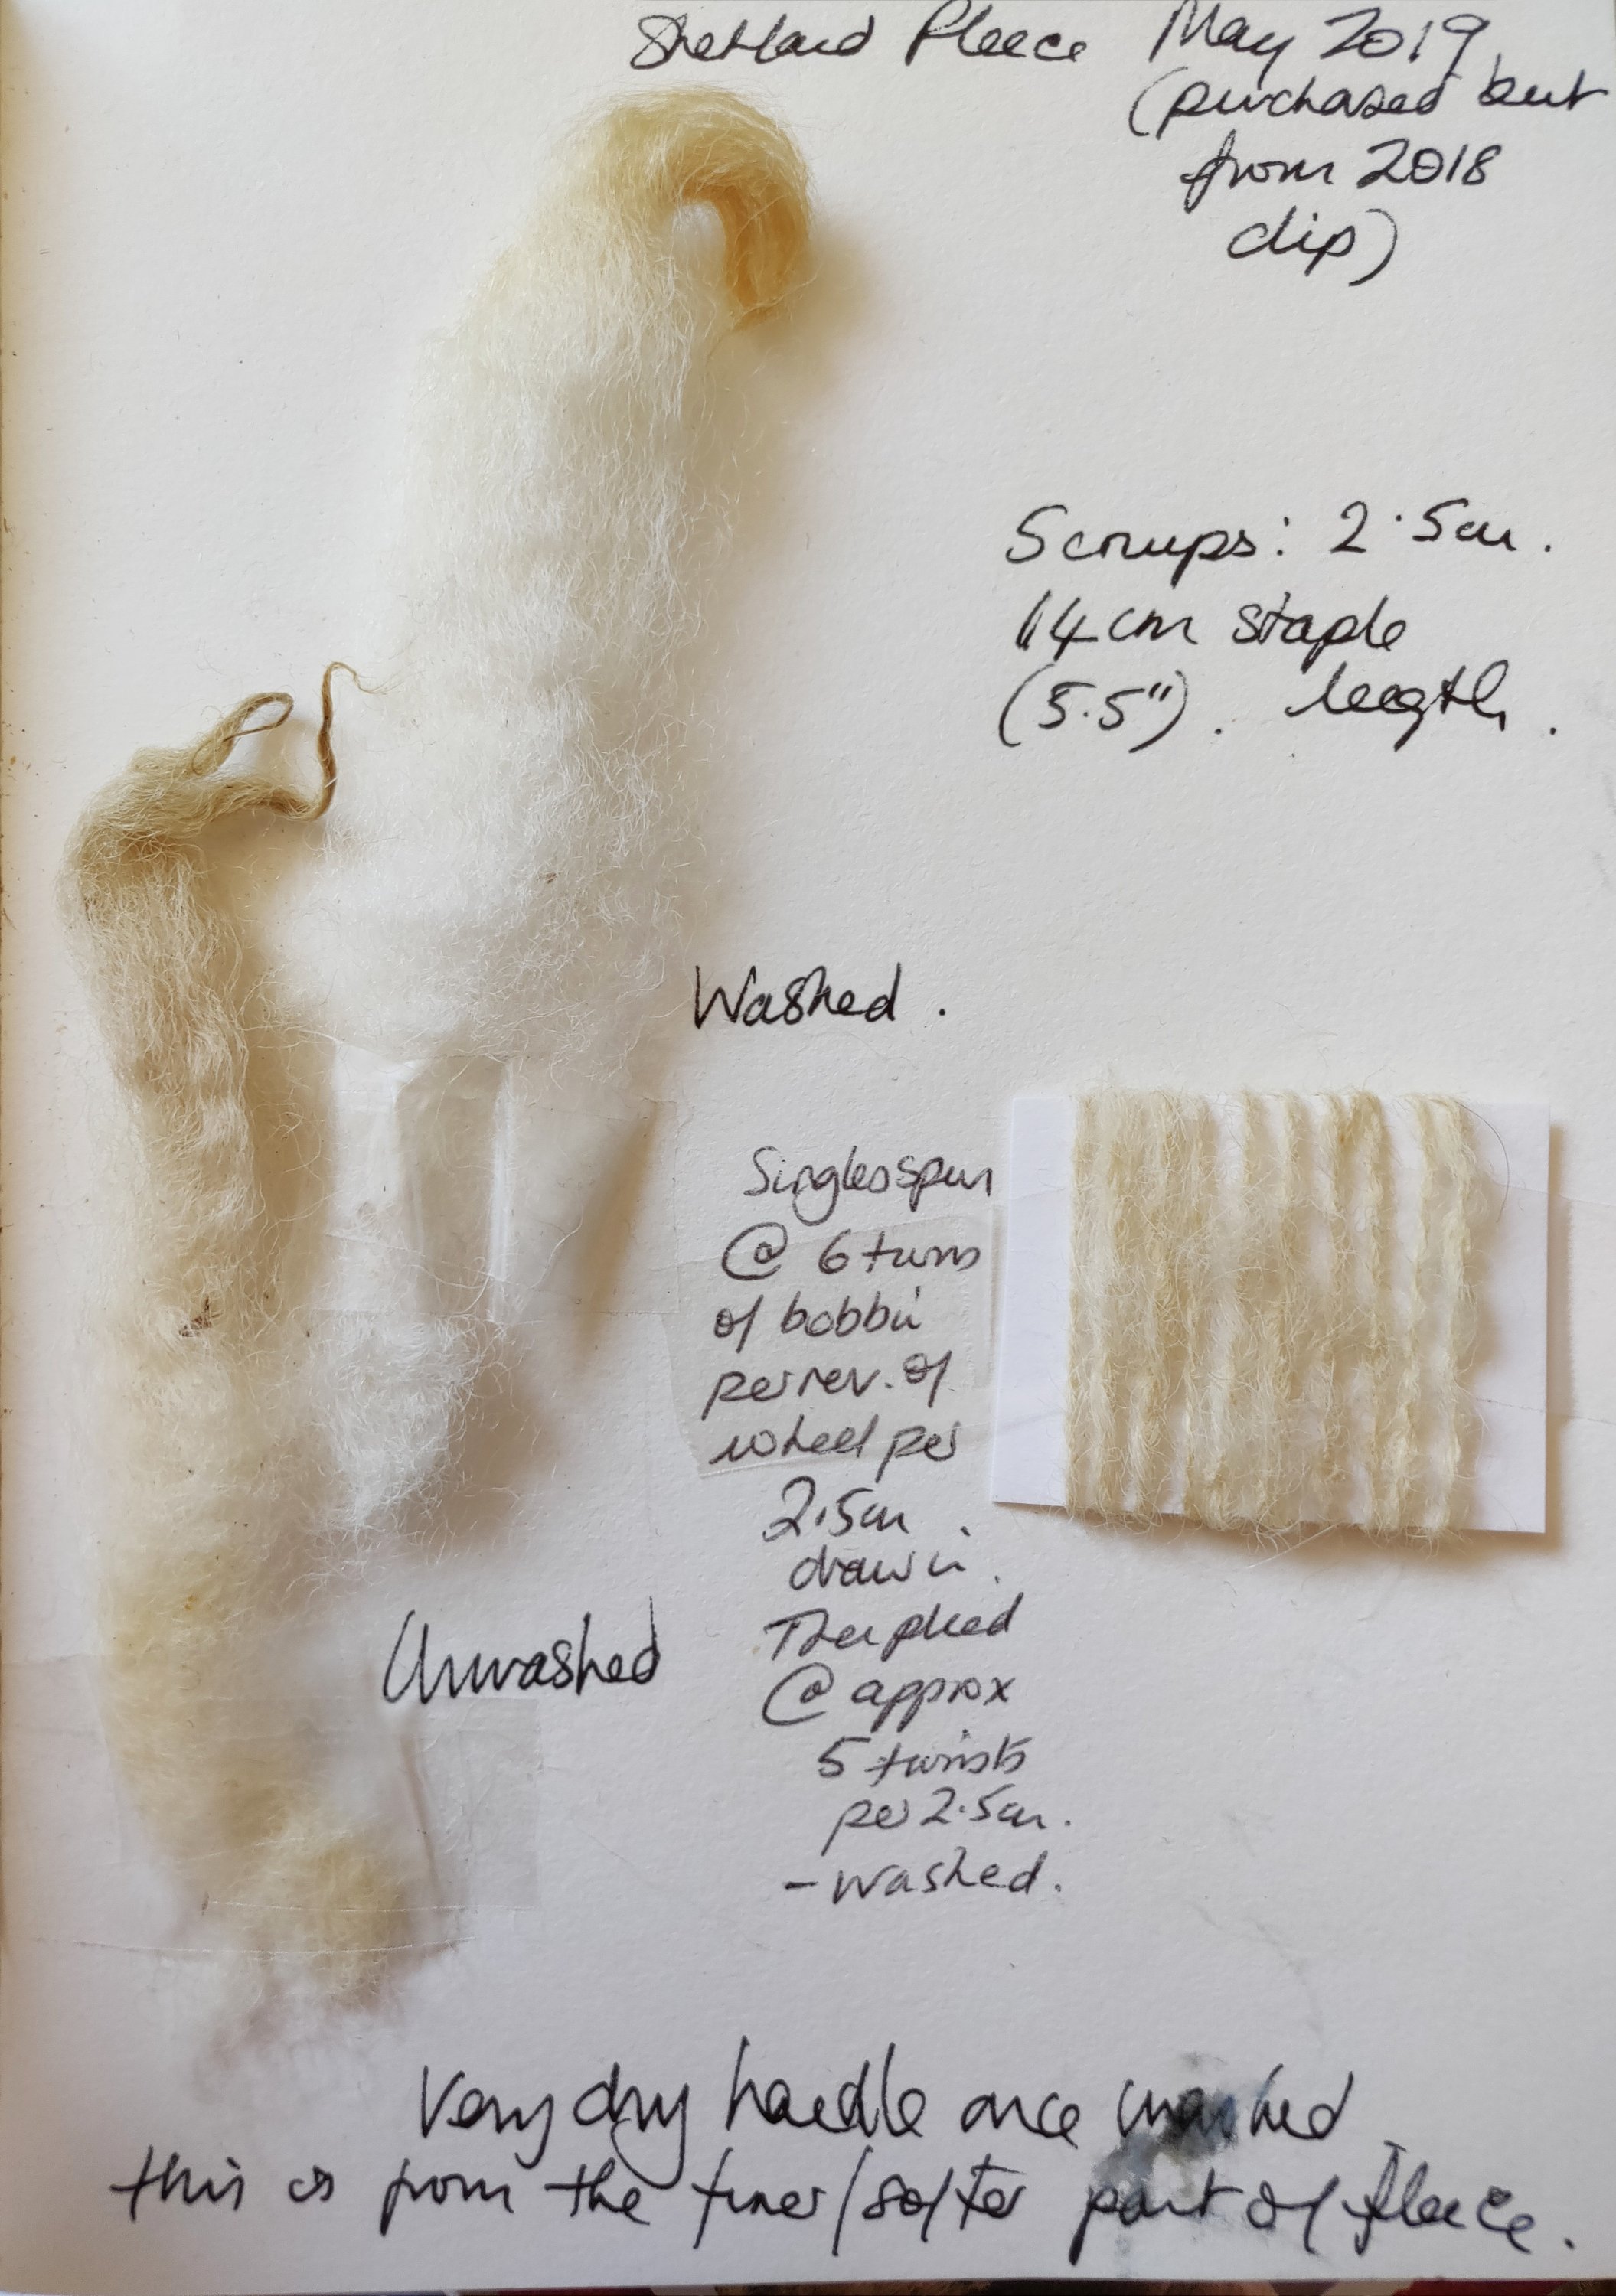 Shetland Fleece May 2019
(purchased but
from 2018
clip)
5 crimps: 2.5cm.
14cm staple
(5.5"). length.
Washed.
Singles spun
@ 6 turns
of bobbin
per rev. of
wheel per
2.5cm.
drawn.
Then plied
@ approx
5 twists
per 2.5cm.
- washed.
Unwashed
Very dry handle once washed
this is from the finer/softer part of fleece.